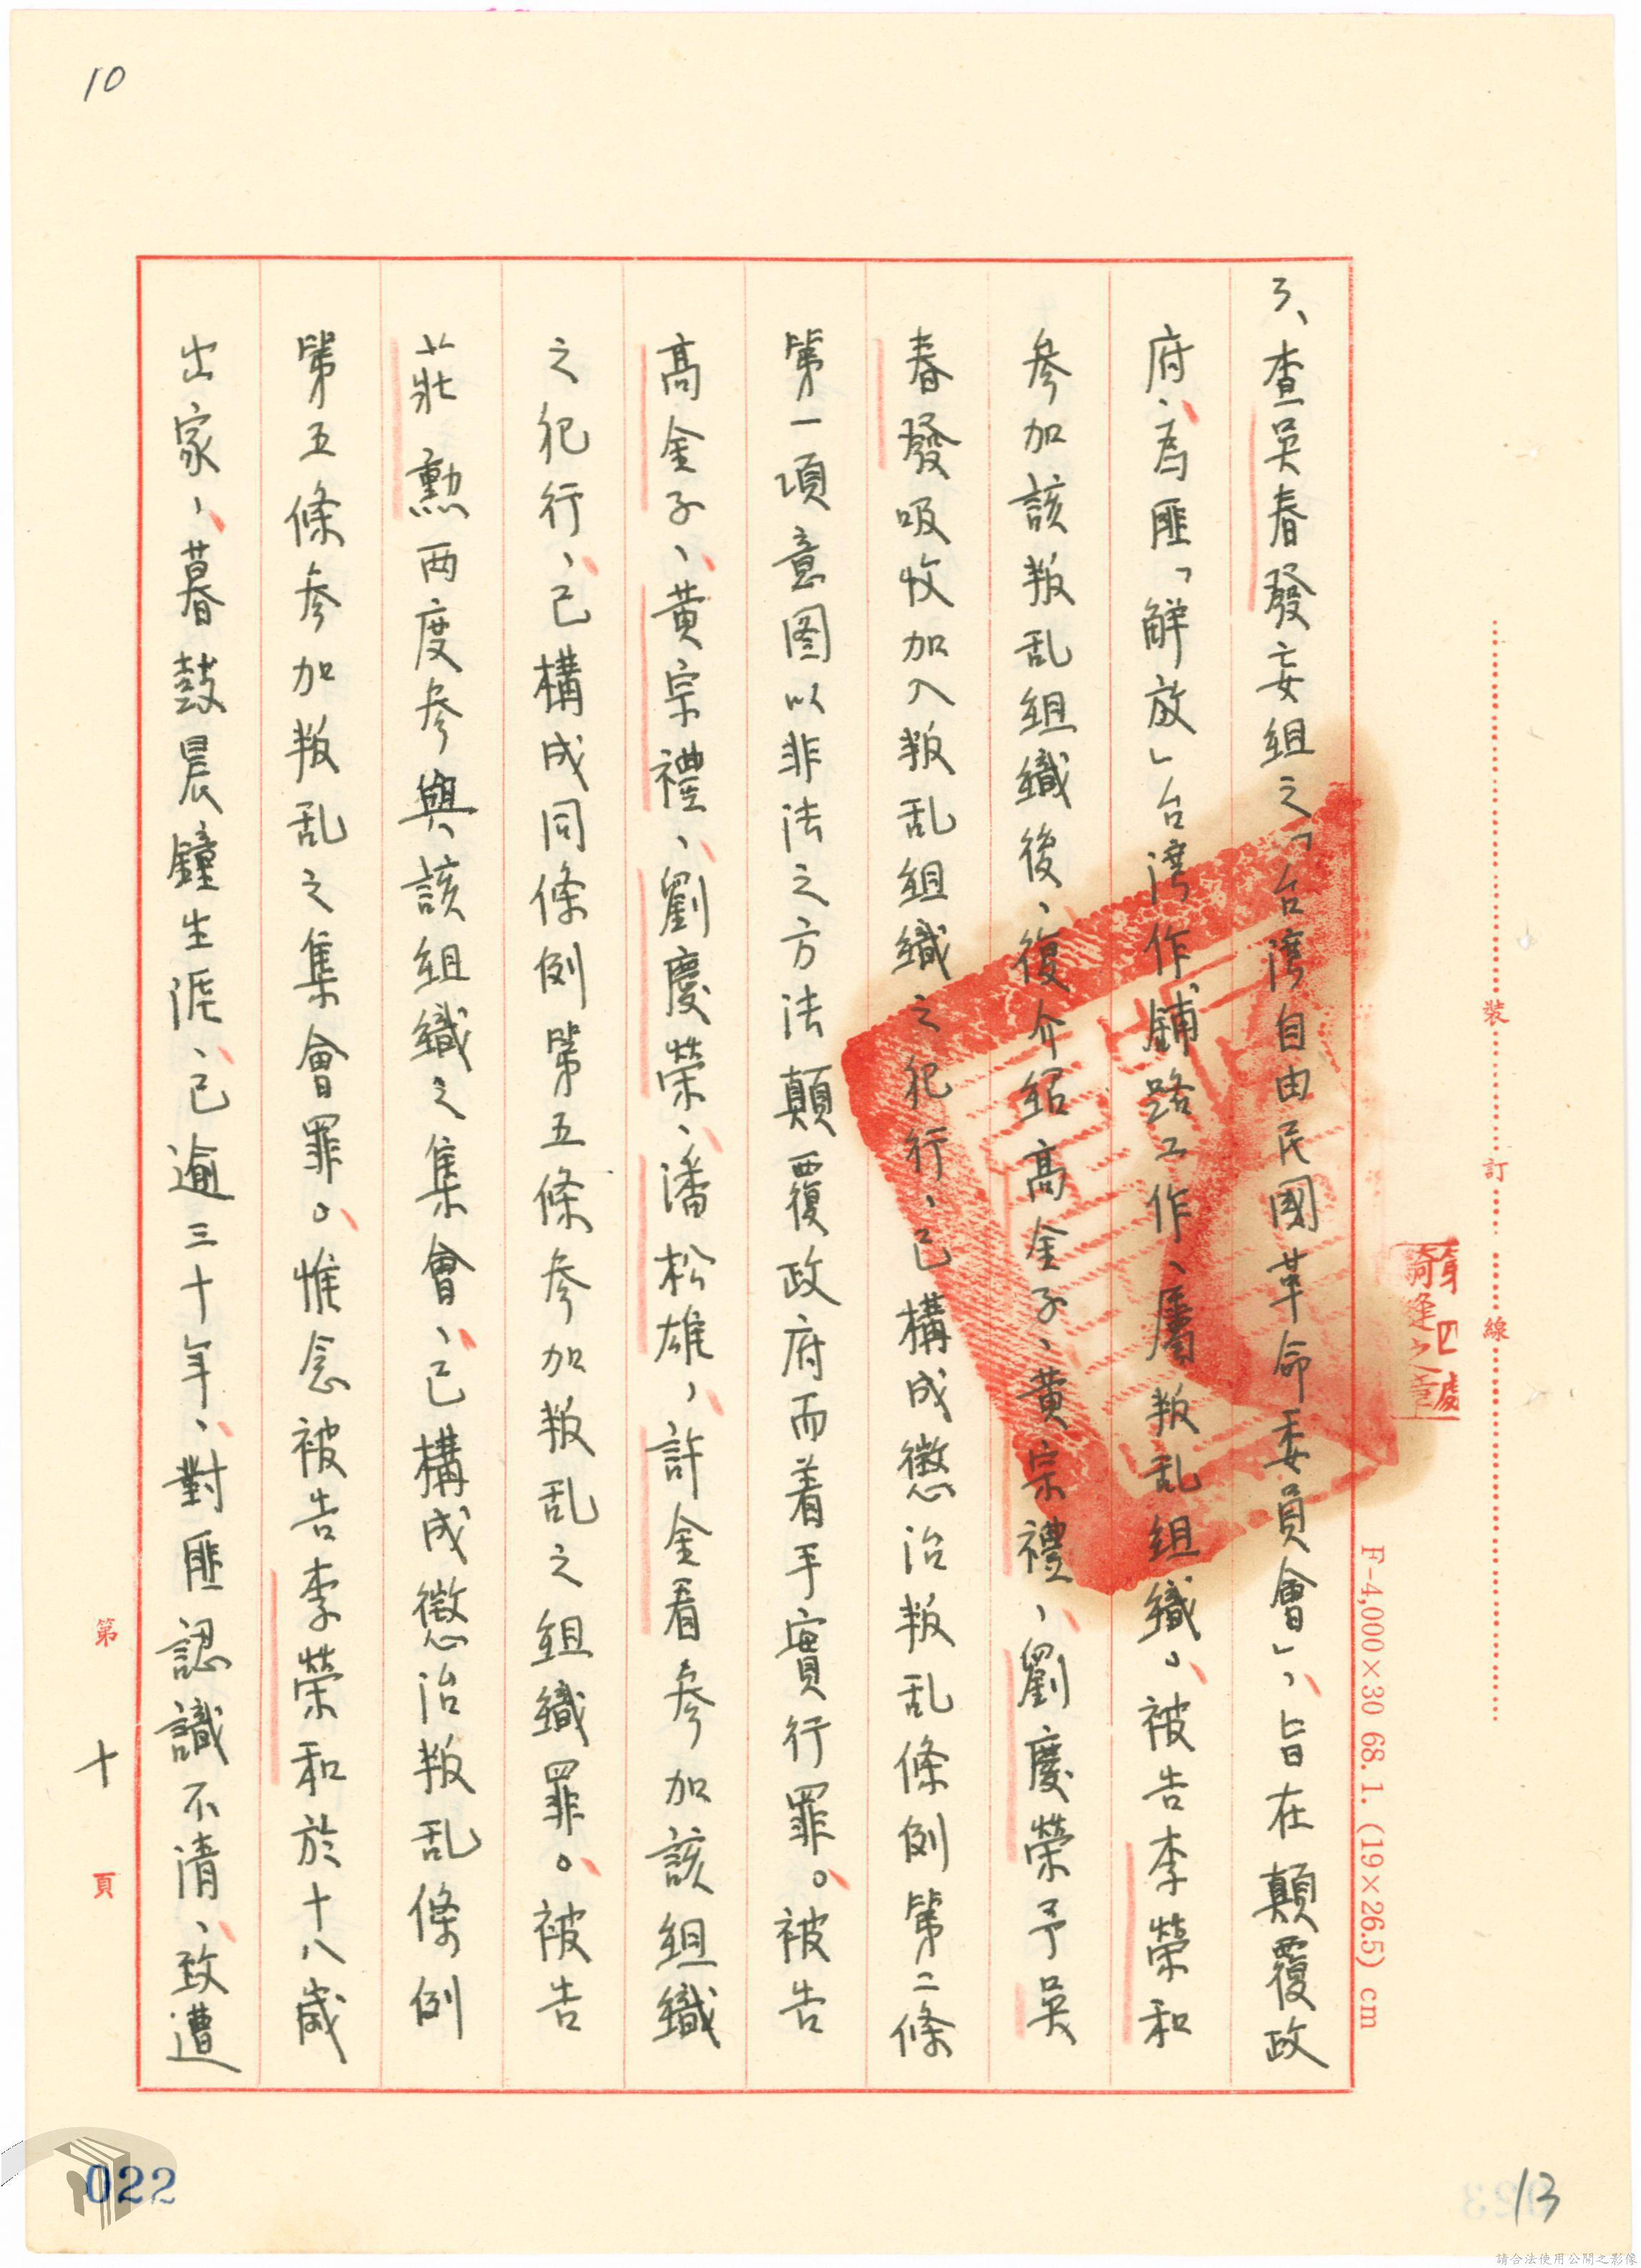 10
3、查吳春發妄組之「台灣自由民國革命委員會」，旨在顛覆政
府、為匪「解放」台灣作鋪路工作、屬叛乱組織。被告李榮和
參加該叛乱組織後、復介紹高金子、黄宗禮、劉慶榮予吳
春發吸收加入叛乱組織之犯行、已構成懲治叛乱條例第二條
第一項意图以非法之方法顛覆政府而着手實行罪。被告
高金子、黄宗禮、劉慶榮、潘松雄，許金看參加該組織
之犯行、已構成同條例第五條參加叛乱之組織罪。被告
莊勲兩度參與該組織之集會、已構成懲治叛乱條例
第五條參加叛乱之集會罪。惟念被告李榮和於十八歲
出家、暮鼓晨鐘生涯、已逾三十年、對匪認識不清、致遭
裝
訂
線
第四處
騎逢之章
F-4,000×30 68.1. (19×26.5) cm
第十頁
022
13
請合法使用公開之影像